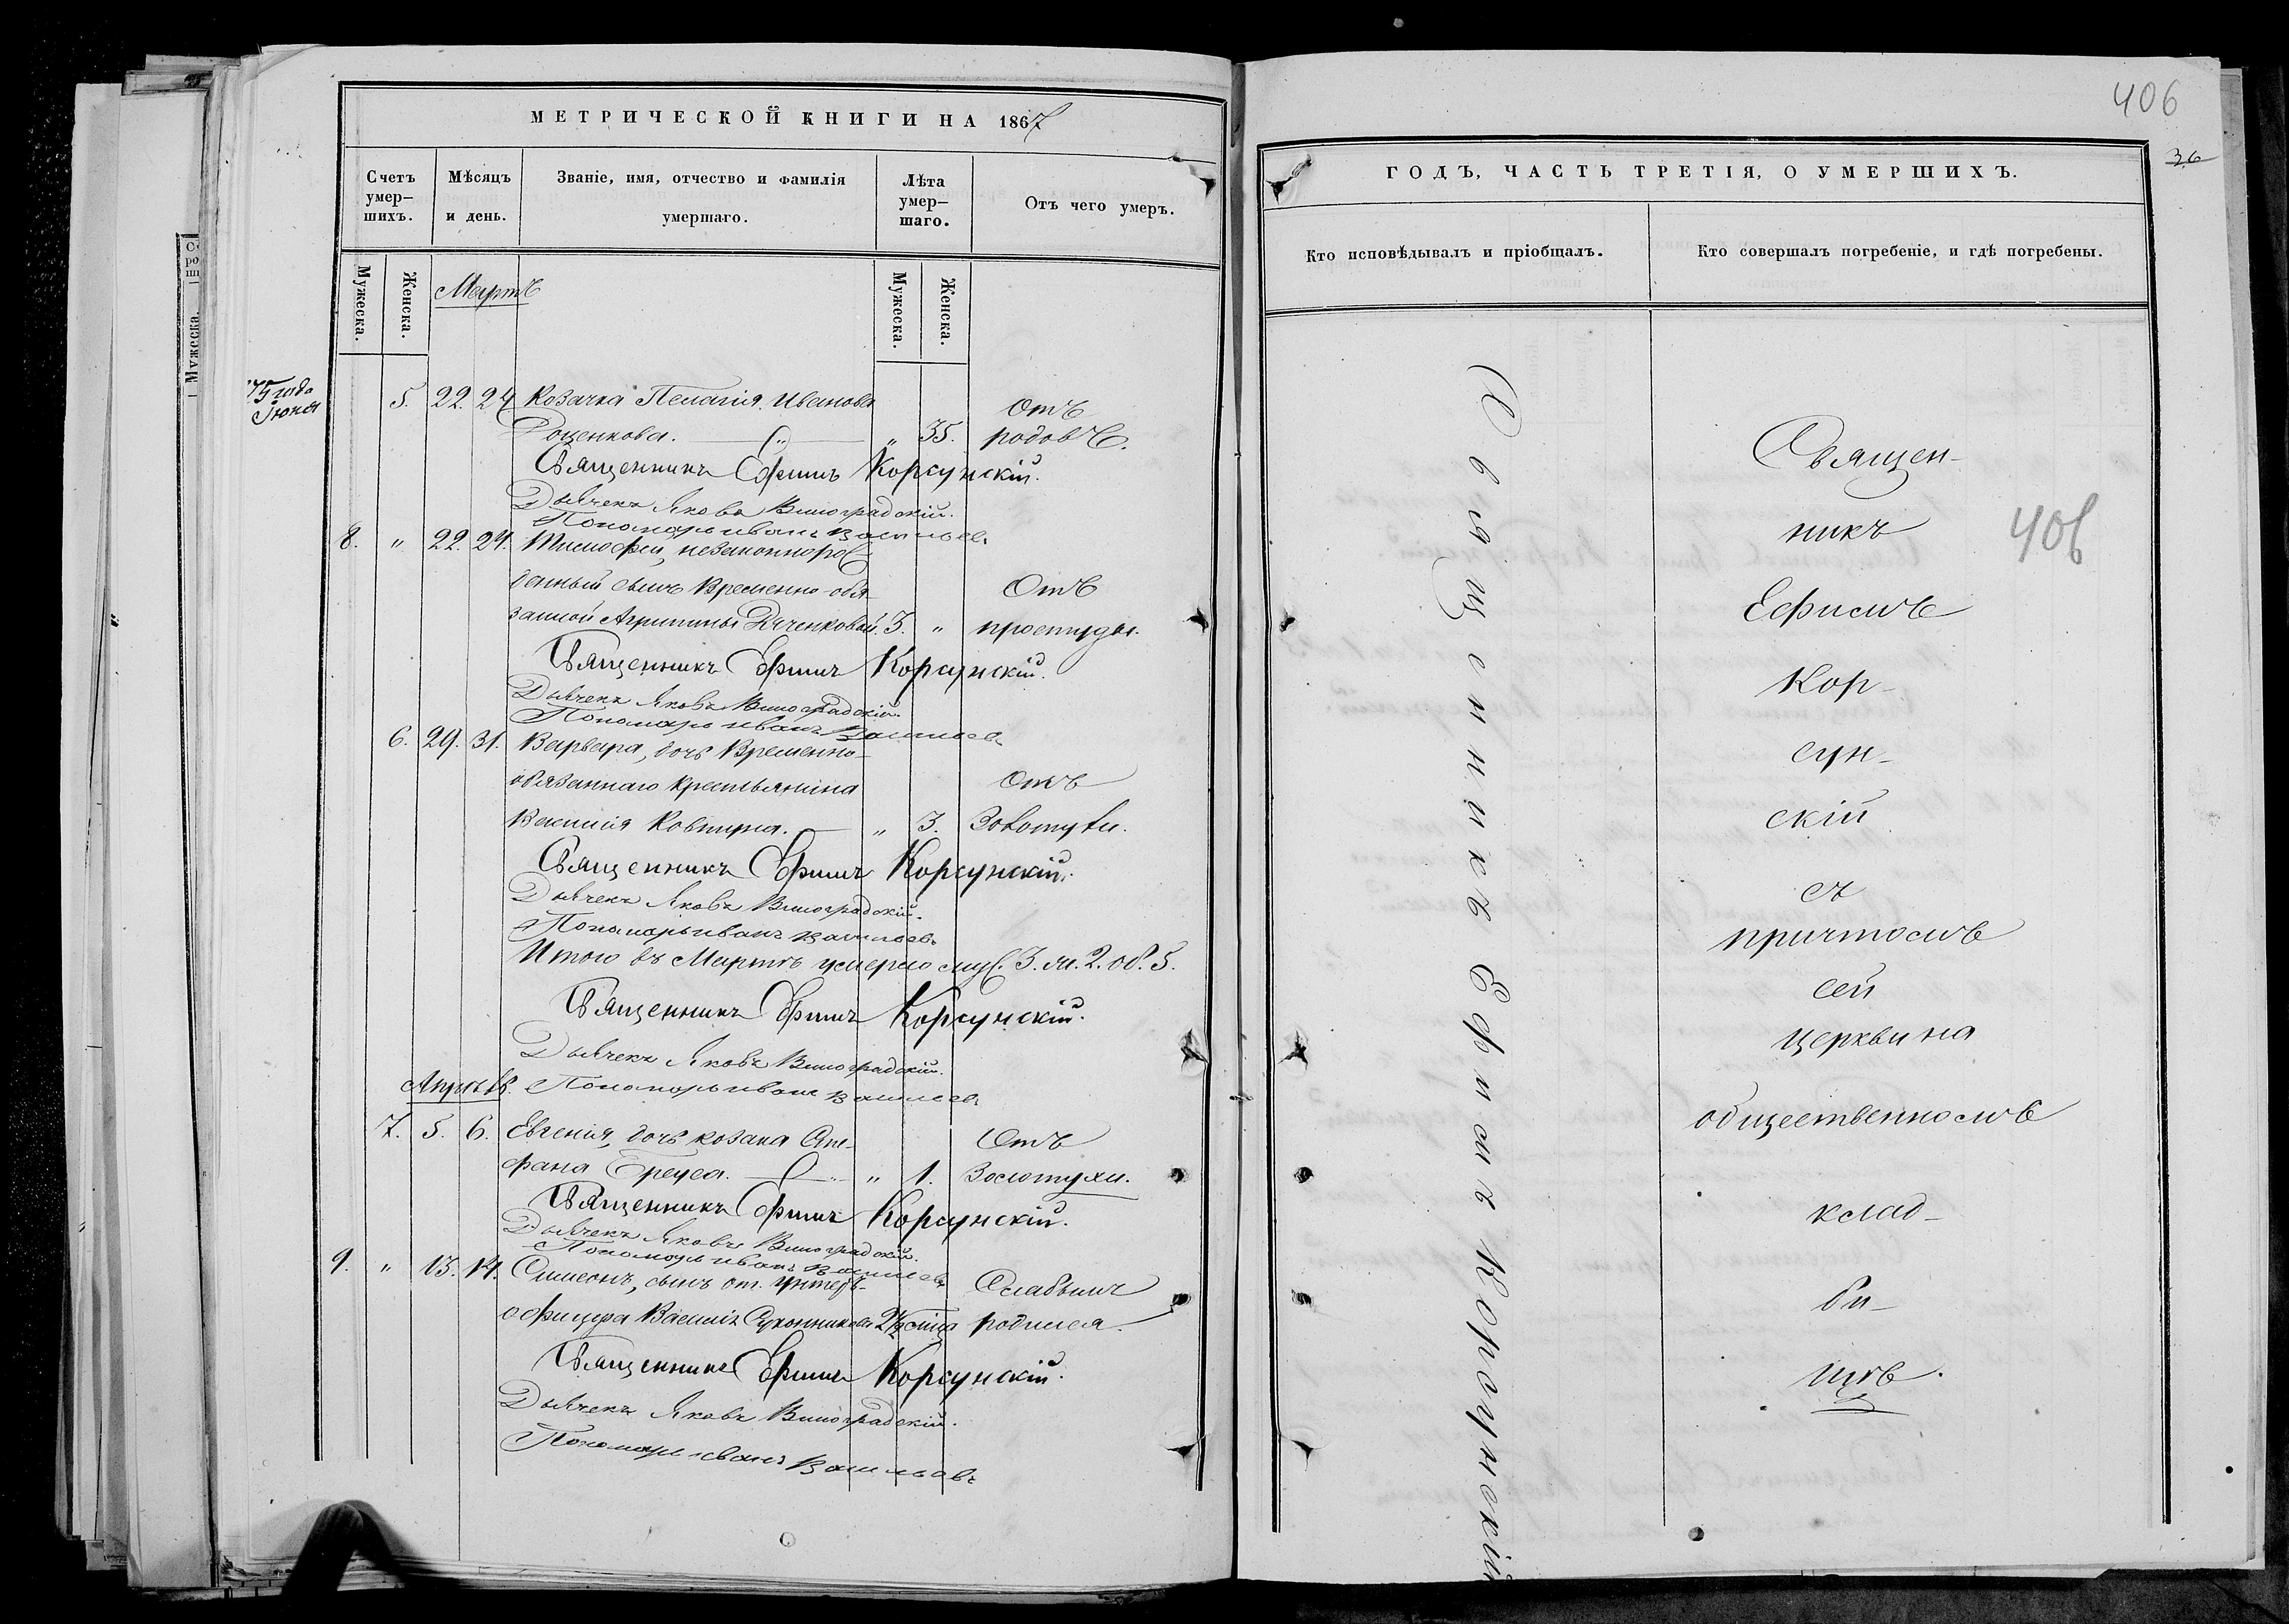 МЕТРИЧЕСКОЙ КНИГИ НА 1867
Счетъ умер-шихъ.
Мѣсяцъ и день.
Званіе, имя, отчество и фамилія умершаго.
Лѣта умер-шаго.
Отъ чего умеръ.
Мужеска.
Женска.
Мартъ
Мужеска.
Женска.
75 года
Іюня
5. 22. 24. Козачка Пелагія Иванова Отъ
Роценкова. „ 35. родовъ.
Священникъ Ефимъ Корсунскій.
Дьячекъ Яковъ Виноградскій.
Пономарь Иванъ Васильевъ
8. „ 22. 24. Тимофей, незаконнорож-
денный сынъ временно-обя- Отъ
занной Агрипины Дяченковой. 3. „ простуды.
Священникъ Ефимъ Корсунскій.
Дьячекъ Яковъ Виноградскій.
Пономарь Иванъ Васильевъ
6. 29. 31. Варвара, дочь временно-
обязаннаго крестьянина Отъ
Василія Ковтуна. „ 3. Золотухи.
Священникъ Ефимъ Корсунскій.
Дьячекъ Яковъ Виноградскій.
Пономарь Иванъ Васильевъ
Итого въ Мартѣ умерло муж. 3. ж. 2. об. 5.
Священникъ Ефимъ Корсунскій.
Дьячекъ Яковъ Виноградскій.
Апрель. Пономарь Иванъ Васильевъ
7. 5. 6. Евгенія, дочь козака Отъ
„ 1. Золотухи.
Священникъ Ефимъ Корсунскій.
Дьячекъ Яковъ Виноградскій.
Пономарь Иванъ Васильевъ
9. „ 13. 14. Симеонъ, сынъ от. унтеръ- Слабымъ
офицера Василія родился.
Священникъ Ефимъ Корсунскій.
Дьячекъ Яковъ Виноградскій.
Пономарь Иванъ Васильевъ
406
36
ГОДЪ, ЧАСТЬ ТРЕТІЯ, О УМЕРШИХЪ.
Кто исповѣдывалъ и пріобщалъ.
Кто совершалъ погребеніе, и гдѣ погребены.
Священникъ Ефимъ Корсунскій
Священ-
никъ
406
Ефимъ
Кор-
сун-
скій
съ
причтомъ
сей
церкви на
общественномъ
клад-
би-
щѣ.